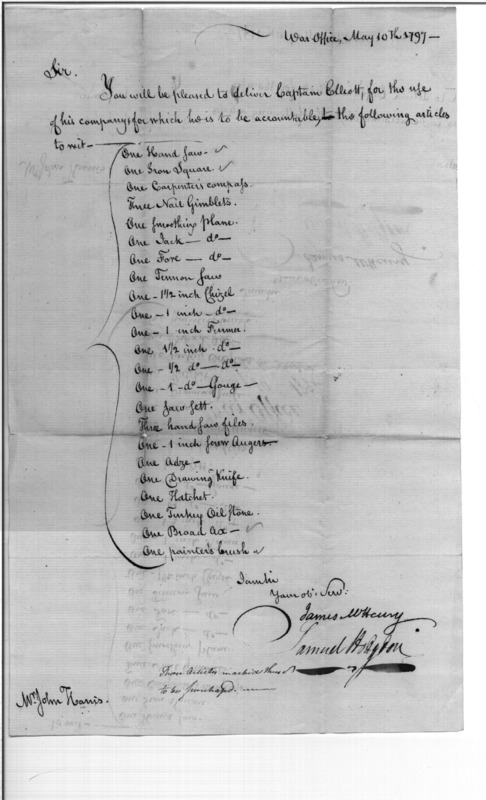 War Office, May 10th 1797 —
Sir.
You will be pleased to deliver Captain Elliott, for the use
of his company, for which he is to be accountable, the following articles
to wit —
One Hand Saw - ✓
One Iron Square ✓
One Carpenters compass.
Three Nail Gimblets.
One smoothing plane.
One Jack — do —
One Fore — do —
One Tennon Saw
One - 1 1/2 inch Chizel
One - 1 inch - do —
One - 1 inch Firmer.
One 1 1/2 inch do —
One - 1/2 do — do —
One - 1 - do — Gouge —
One Saw Sett.
Three hand Saw files.
One - 1 inch screw Auger
One Adze —
One Drawing Knife.
One Hatchet.
One Turkey Oil Stone.
One Broad Ax — ✓
One painter's brush ✓
I am Sir
Your ob. Serv:
James McHenry
Samuel Hodgdon
Those Articles marked thus ✓
to be purchased. —
Mr. John Harris.